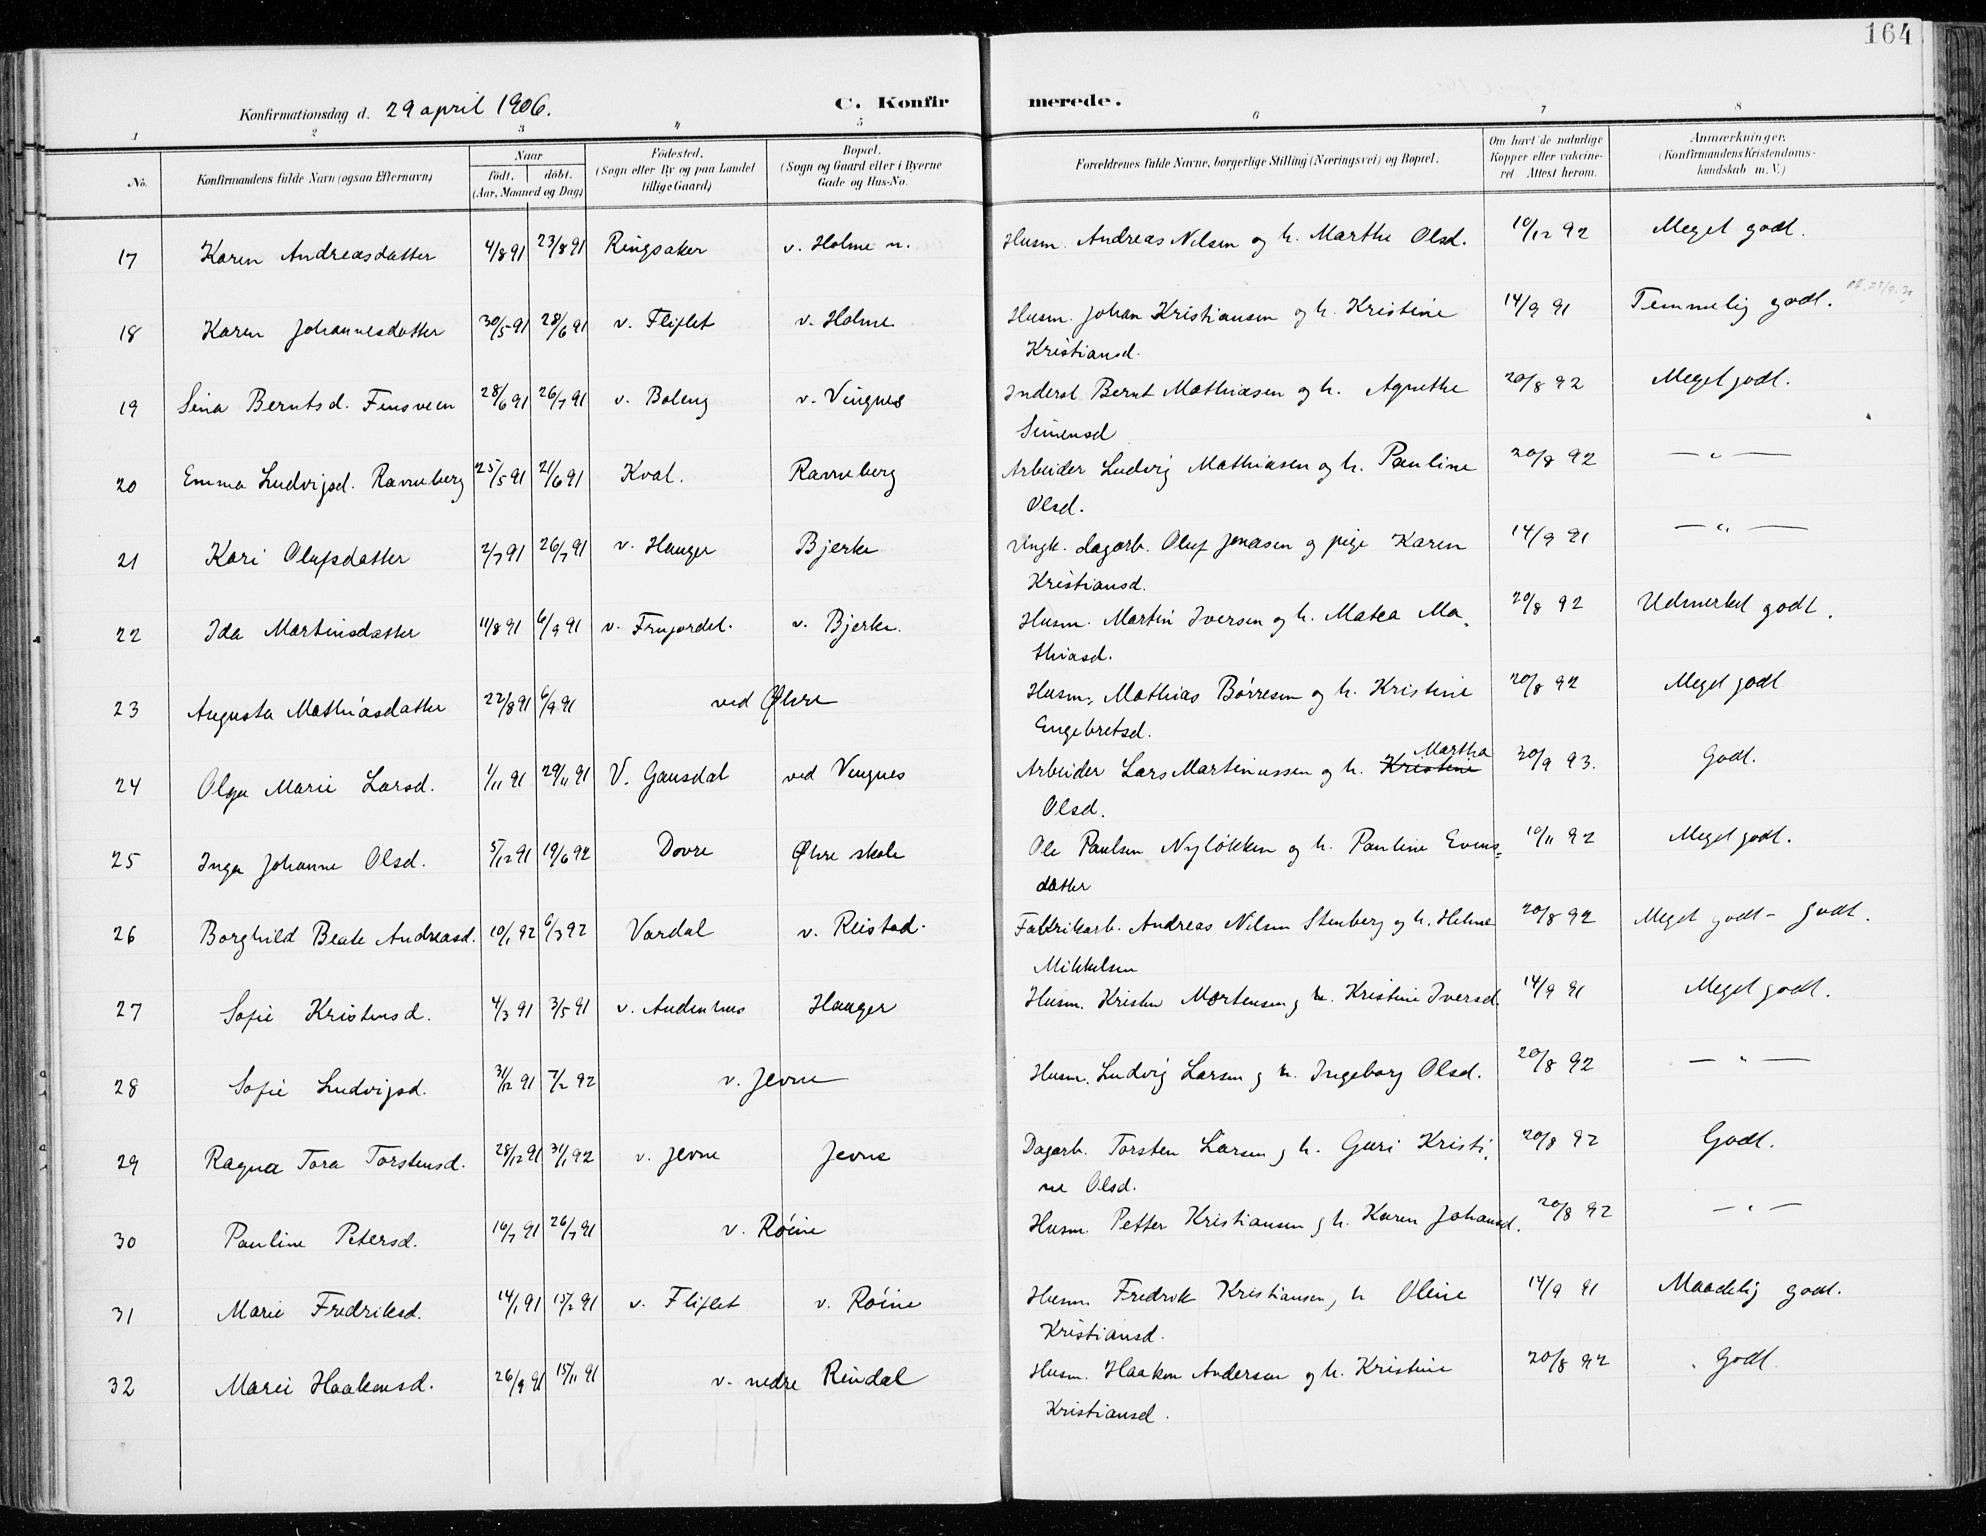 164
Konfirmationsdag d. 29 april 1906.
C. Konfirmerede.
1 2 3 4 5 6 7 8
No. Konfirmandens fulde Navn (ogsaa Efternavn) Naar födt. döbt. (Aar, Maaned og Dag) Födested. (Sogn eller By og paa Landet tillige Gaard) Bopæl. (Sogn og Gaard eller i Byerne Gade og Hus-No. Forældrenes fulde Navne, borgerlige Stilling (Næringsvei) og Bopæl. Om havt de naturlige Kopper eller vakcineret Attest herom. Anmærkninger. (Konfirmandens Kristendomskundskab m. V.)
17 Karen Andreasdatter 4/8 91 23/8 91 Ringsaker v. Holme n. Husm. Andreas Nilsen og h. Marthe Olsd. 10/12 92 Meget godt.
18 Karen Johannesdatter 30/5 91 28/6 91 v. Fliflet v. Holme Husm. Johan Kristiansen og h. Kristine 14/9 91 Temmelig godt.
Kristiansd.
19 Sina Berntsd. Finsveen 28/6 91 26/7 91 v. Boleng v. Vingnes Inderst Bernt Mathiasen og h. Agnethe 20/8 92 Meget godt.
Simensd
20 Emma Ludvigsd. Ravneberg 25/5 91 21/6 91 Kval. Ravneberg Arbeider Ludvig Mathiasen og h. Pauline 20/8 92 — " —
Olsd.
21 Kari Olufsdatter 2/7 91 26/7 91 v. Hauger Bjerke Ungk. dagarb. Oluf Jonasen og pige Karen 14/9 91 — " —
Kristiansd.
22 Ida Martinsdatter 11/8 91 6/9 91 v. Frujordet. v. Bjerke. Husm. Martin Iversen og h. Matea Ma- 20/8 92 Udmerket godt.
thiasd.
23 Augusta Mathiasdatter 22/8 91 6/9 91 ved Øhre Husm. Mathias Børresen og h. Kristine 20/8 92 Meget godt
Engebretsd.
24 Olga Marie Larsd. 1/11 91 29/11 91 V. Gausdal ved Vingnes Arbeider Lars Martinussen og h. Kristine Martha 30/9 93. Godt.
Olsd.
25 Inga Johanne Olsd. 5/12 91 19/6 92 Dovre Øhre skole Ole Paulsen Nyløkken og h. Pauline Evens- 10/11 92 Meget godt.
datter
26 Borghild Beate Andreasd. 10/1 92 6/3 92 Vardal v. Reistad. Fabrikarb. Andreas Nilsen Stenberg og h. Helene 20/8 92 Meget godt - godt.
Mikkelsen
27 Sofie Kristensd. 4/3 91 3/5 91 v. Audenhus Hauger Husm. Kristen Mortensen g h. Kristine Iversd. 14/9 91 Meget godt.
28 Sofie Ludvigsd. 31/12 91 7/2 92 v. Jevne Husm. Ludvig Larsen g h. Ingeborg Olsd. 20/8 92 — " —
29 Ragna Tora Torstensd. 28/12 91 31/1 92 v. Jevne Jevne Dagarb. Torsten Larsen g h. Guri Kristi- 20/8 92 Godt.
ne Olsd.
30 Pauline Petersd. 16/7 91 26/7 91 v. Røine Husm. Petter Kristiansen g h. Karen Johansd. 20/8 92 — " —
31 Marie Fredriksd. 14/1 91 15/2 91 v. Fliflet v. Røine Husm. Fredrik Kristiansen g h Oline 14/9 91 Maadelig godt.
Kristiansd.
32 Marie Haakensd. 26/9 91 15/11 91 v. nedre Rindal Husm. Haaken Andersen og h. Kristine 20/8 92 Godt
Kristiansd.